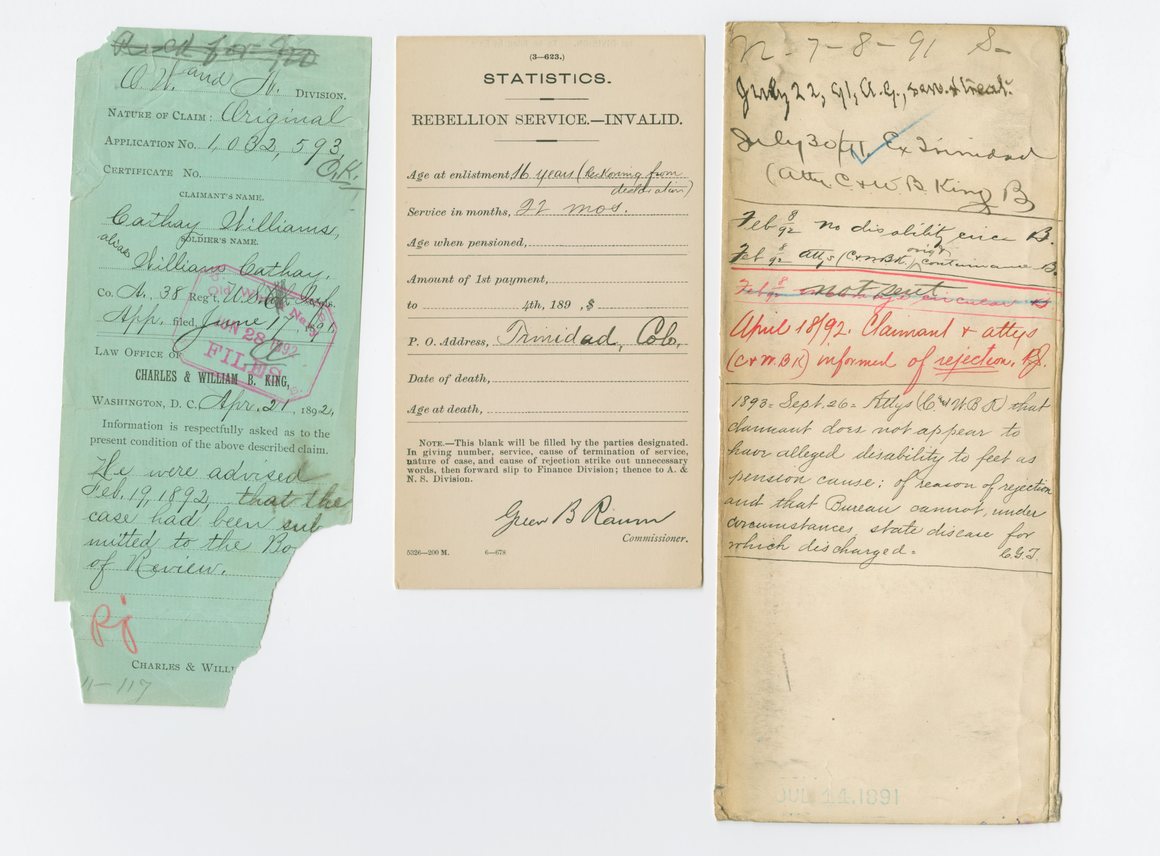 O. W. and N. DIVISION.
NATURE OF CLAIM: Original
APPLICATION NO. 1,032,593
CERTIFICATE NO. O.K.
CLAIMANT'S NAME.
Cathay Williams,
SOLDIER'S NAME.
alias William Cathay.
Co. A, 38 Reg't, U.S.
App. filed June 17, 91
JUN 28 1892
FILES
LAW OFFICE OF
CHARLES & WILLIAM B. KING,
WASHINGTON, D. C. Apr. 21, 1892,
Information is respectfully asked as to the
present condition of the above described claim.
were advised
Feb. 19, 1892, that the
case had been sub
mitted to the Bo
of Review.
Rj
CHARLES & WILL
11-117
(3—623.)
STATISTICS.
REBELLION SERVICE.—INVALID.
Age at enlistment, 16 years (Reckoning from
declaration)
Service in months, 22 mos.
Age when pensioned,
Amount of 1st payment,
to 4th, 189 , $
P. O. Address, Trinidad, Colo.
Date of death,
Age at death,
NOTE.—This blank will be filled by the parties designated.
In giving number, service, cause of termination of service,
nature of case, and cause of rejection strike out unnecessary
words, then forward slip to Finance Division; thence to A. &
N. S. Division.
Green B Raum
Commissioner.
5326—200 M. 6—678
7-8-91 S-
July 22, 91, A.G., serv. & treat.
July 30/91 Ex Trinidad
(Atty C & W. B. King B
Feb 8/92 no disability since B.
Feb 8/92 attys (C & W B K) orig. continuance B.
Feb 8/92 not sent circular B
April 18/92. Claimant & attys
(C & W. B K) informed of rejection. Rj.
1893 = Sept. 26 = Attys (C. and W. B. K) that
claimant does not appear to
have alleged desability to feet as
pension cause; of reason of rejection
and that Bureau cannot, under
circumstances, state disease for
which discharged = C.G.T.
JUL 14 1891